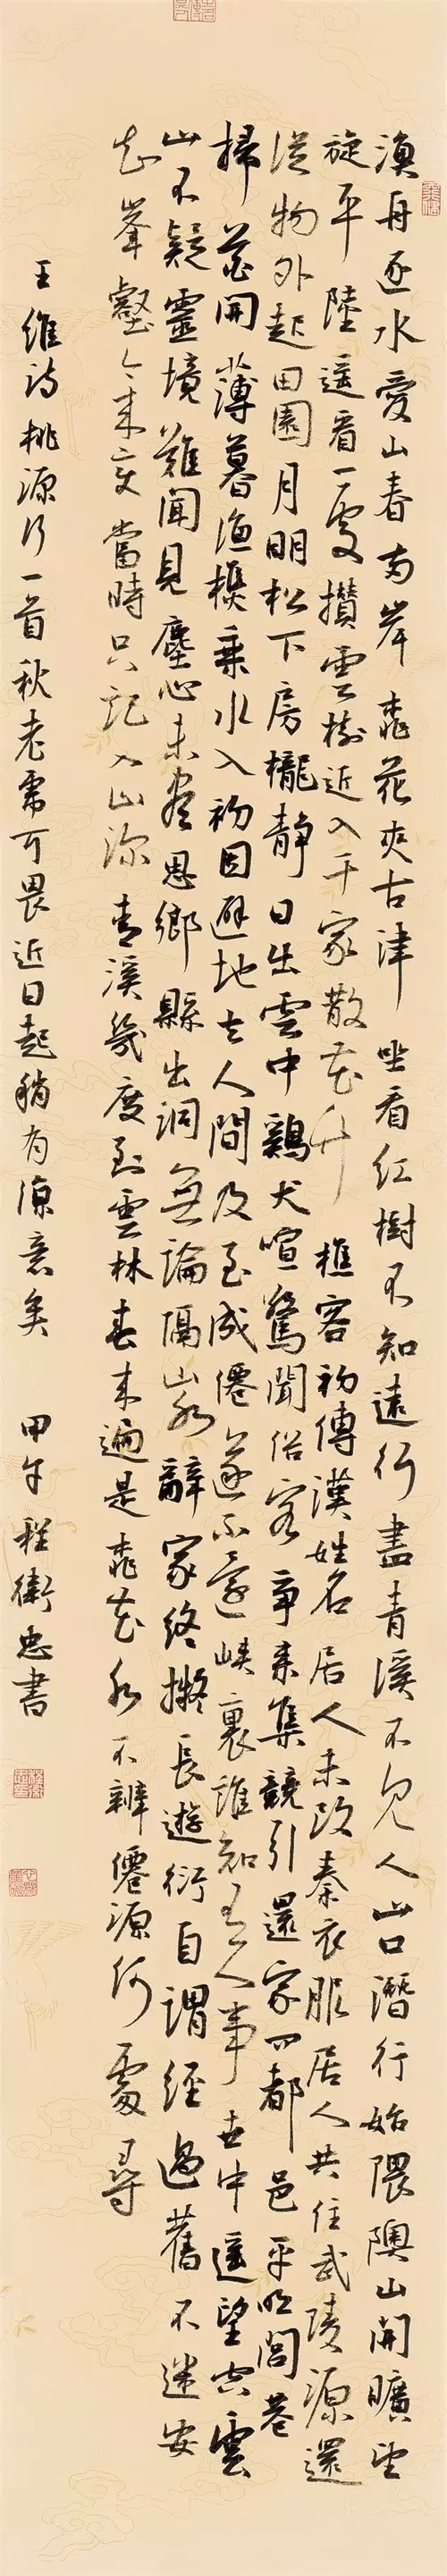 漁舟逐水愛山春兩岸桃花夾古津坐看紅樹不知遠行盡青溪不見人山口潛行始隈隩山開曠望
旋平陸遙看一處攢雲樹近入千家散花竹樵客初傳漢姓名居人未改秦衣服居人共住武陵源還
從物外起田園月明松下房櫳靜日出雲中鷄犬喧驚聞俗客爭來集競引還家問都邑平明閭巷
掃花開薄暮漁樵乘水入初因避地去人間及至成僊遂不還峽裏誰知有人事世中遙望空雲
山不疑靈境難聞見塵心未盡思鄉縣出洞無論隔山水辭家終擬長遊衍自謂經過舊不迷安
知峯壑今來變當時只記入山深青溪幾度到雲林春來遍是桃花水不辨僊源何處尋
王維詩桃源行一首秋老虎可畏近日起稍有涼意矣 甲午程衛忠書